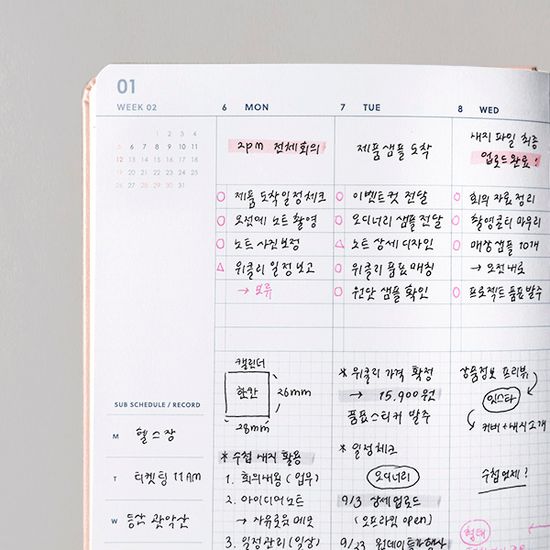 01
WEEK 02
6 MON
7 TUE
8 WED
1 2 3 4
5 6 7 8 9 10 11
12 13 14 15 16 17 18
19 20 21 22 23 24 25
26 27 28 29 30 31
2pm 전체회의
제품 샘플 도착
내지 파일 최종
업로드완료!
제품 도착일정체크
오전에 노트 촬영
노트 사진 보정
위클리 일정 보고
→ 보류
이벤트컷 전달
오디너리 샘플 전달
노트 상세 디자인
위클리 품목 매칭
원단 샘플 확인
회의 자료 정리
촬영콘티 마무리
매장샘플 10개
→ 오전 내로
프로젝트 품표발주
캘린더
한칸
26mm
28mm
* 수첩 내지 활용
1. 회의내용 (업무)
2. 아이디어노트
→ 자유로운 메모
3. 일정관리 (일상)
* 위클리 가격 확정
→ 15,900원
품표스티커 발주
* 일정체크
오디너리
9/3 상세업로드
(오프라인 open)
9/23
상품정보 프리뷰
인스타
→ 커버 + 내지 2개
수첩 언제?
형태
SUB SCHEDULE / RECORD
M 헬스장
T 티켓팅 11AM
W 등산 관악산